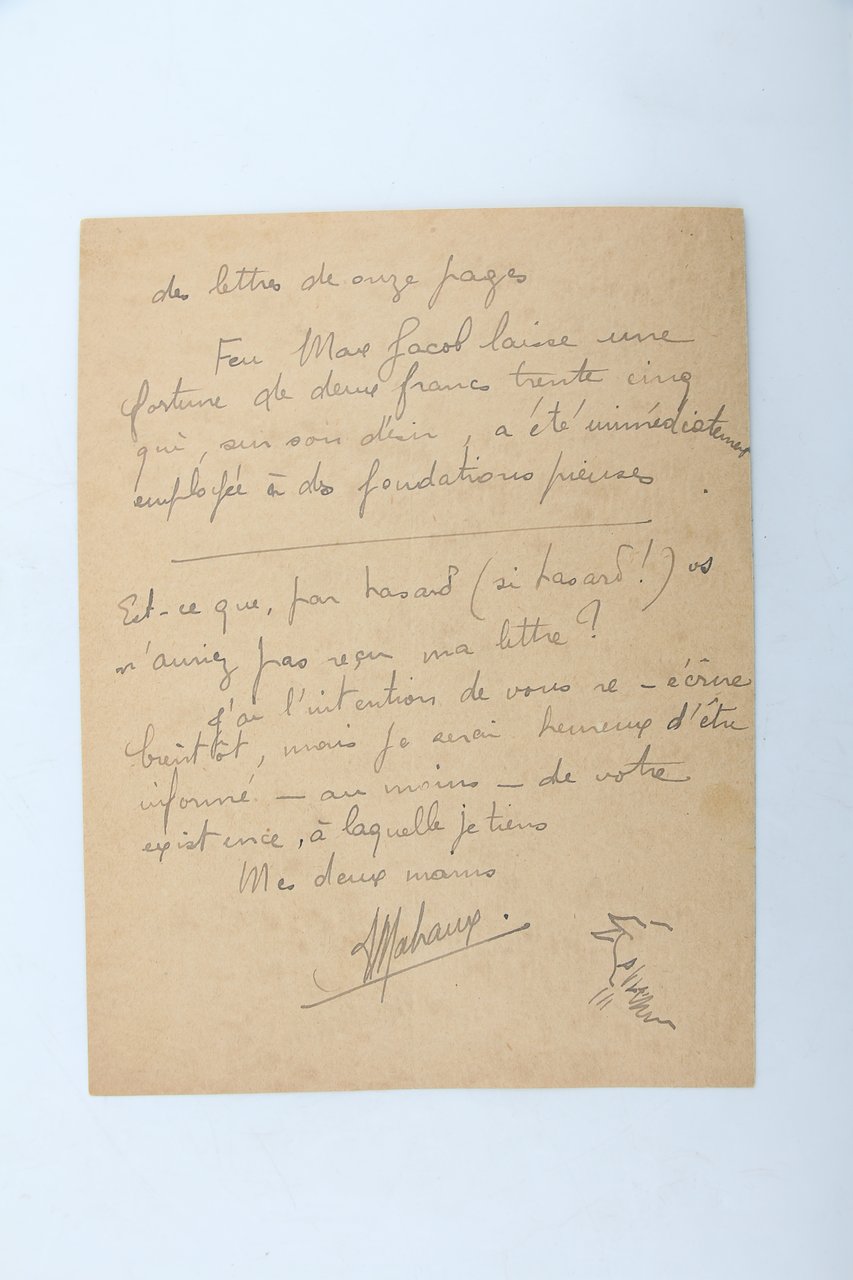 des lettres de onze pages
Feu Max Jacob laisse une
fortune de deux francs trente cinq
qui, sur son désir, a été immédiatement
employée à des fondations pieuses.
Est-ce que, par hasard (si hasard!) vs
n'auriez pas reçu ma lettre?
J'ai l'intention de vous re-écrire
bientôt, mais je serai heureux d'être
informé — au moins — de votre
existence, à laquelle je tiens
Mes deux mains